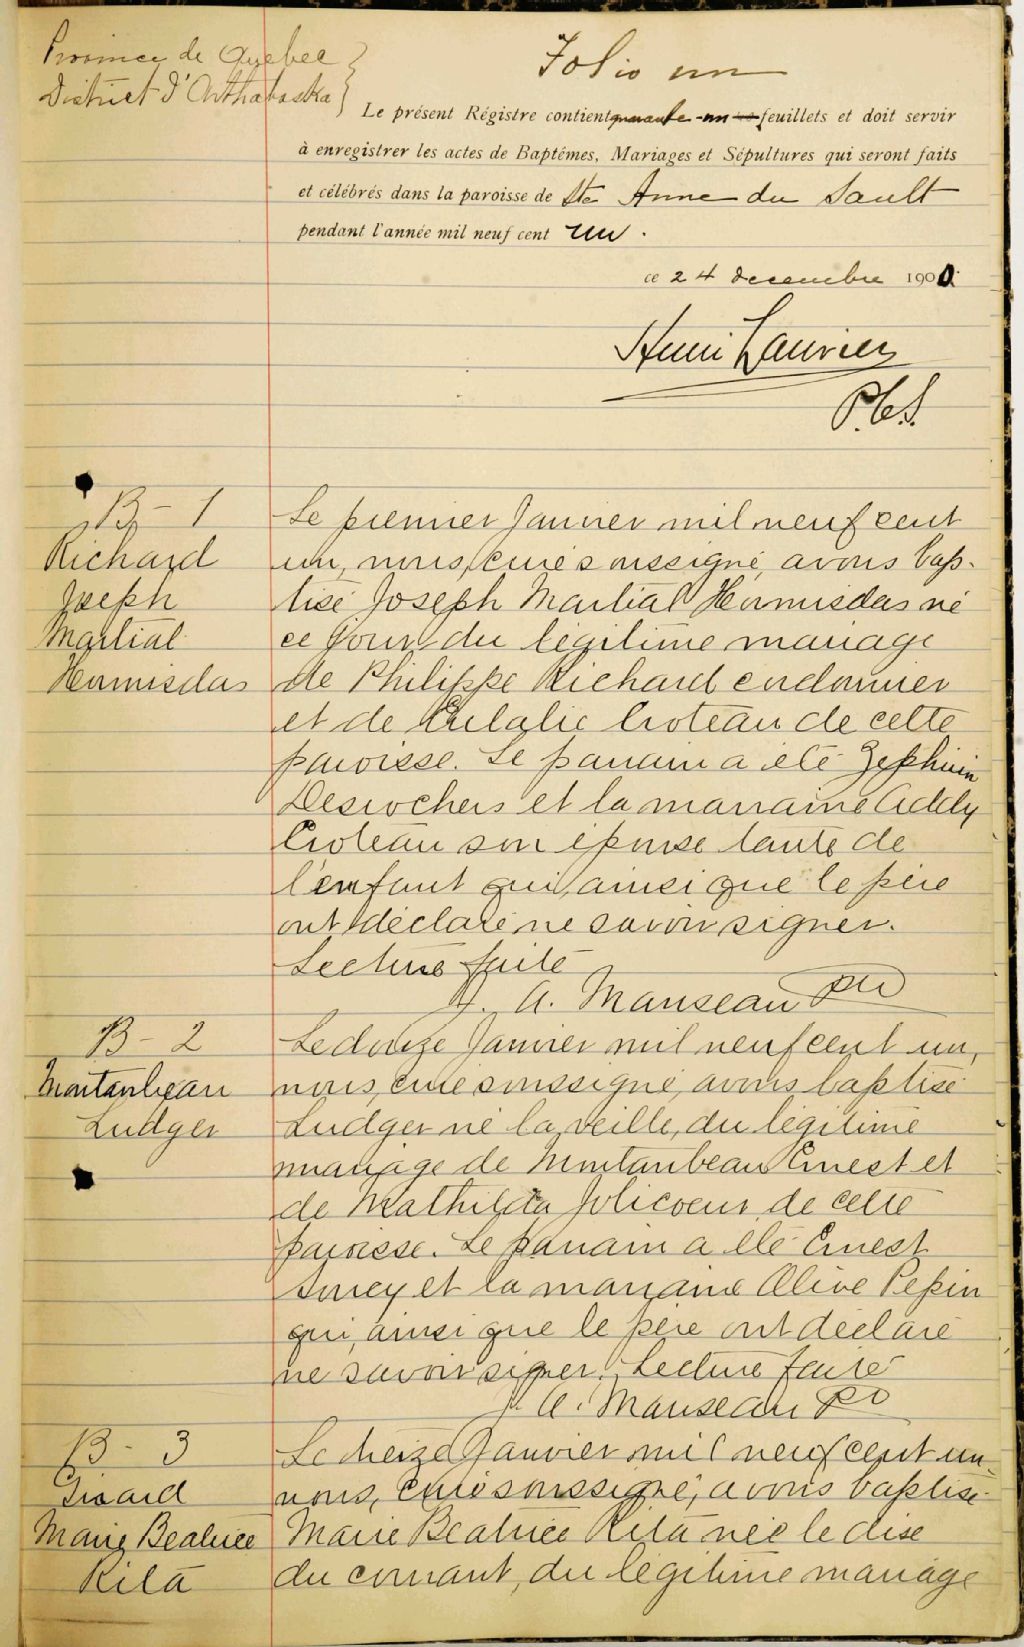 Province de Quebec
District d'Arthabaska
Folio un
Le présent Régistre contient quarante-un feuillets et doit servir
à enregistrer les actes de Baptêmes, Mariages et Sépultures qui seront faits
et célébrés dans la paroisse de Ste Anne du Sault
pendant l'année mil neuf cent un.
ce 24 decembre 1900
Henri Laurier
P.C.S.
B-1
Richard
Joseph
Martial
Hermisdas
Le premier Janvier mil neuf cent
un, nous, curé soussigné, avons bap-
tisé Joseph Martial Hermisdas né
ce jour, du légitime mariage
de Philippe Richard cordonnier
et de Eulalie Croteau de cette
paroisse. Le parrain a été Zephirin
Desrochers et la marraine Addly
Croteau son épouse tante de
l'enfant qui, ainsi que le père
ont déclaré ne savoir signer.
Lecture faite
J. A. Manseau ptr
B-2
Montambeau
Ludger
Le douze Janvier mil neuf cent un,
nous, curé soussigné, avons baptisé
Ludger né la veille, du légitime
mariage de Montambeau Ernest et
de Mathilda Jolicoeur de cette
paroisse. Le parrain a été Ernest
et la marraine Olive Pepin
qui, ainsi que le père ont déclaré
ne savoir signer. Lecture faite
J. A. Manseau ptr
B-3
Girard
Marie Beatrice
Rita
Le treize Janvier mil neuf cent un,
nous, curé soussigné, avons baptisé
Marie Beatrice Rita née le dise
du courant, du légitime mariage